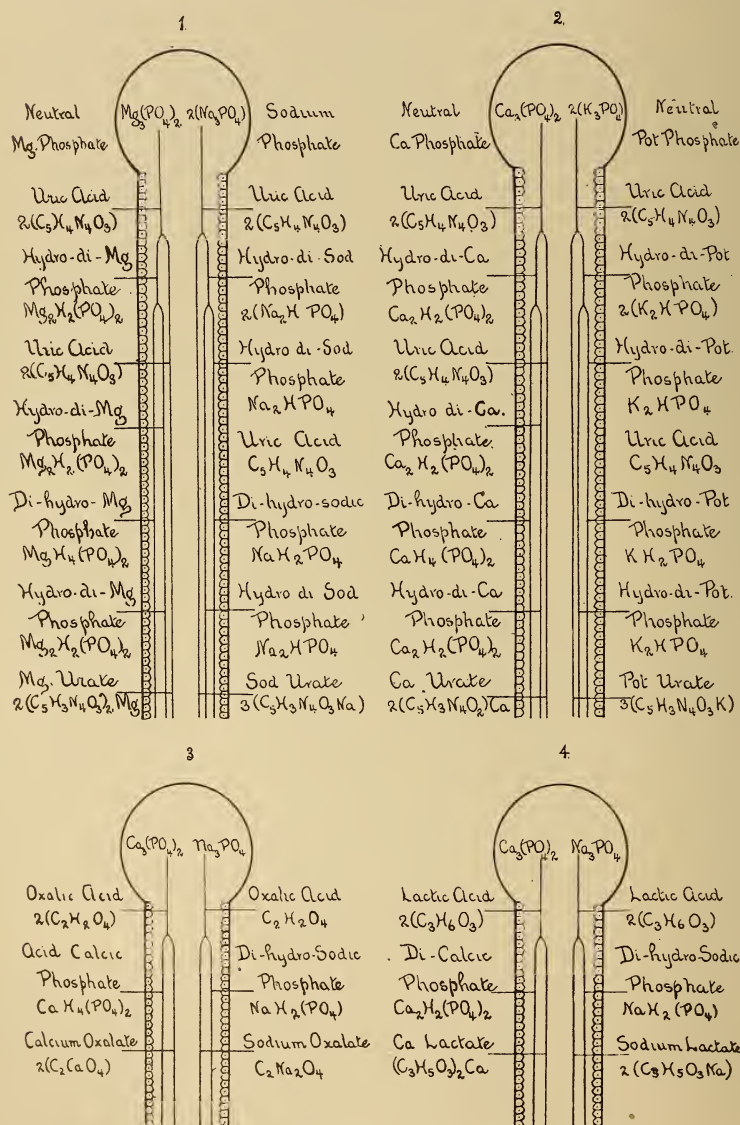 1.
Neutral
Mg. Phosphate
Mg3(PO4)2 2(Na3PO4)
Sodium
Phosphate
Uric Acid
2(C5H4N4O3)
Hydro-di-Mg
Phosphate
Mg2H2(PO4)2
Uric Acid
2(C5H4N4O3)
Hydro-di-Mg
Phosphate
Mg2H2(PO4)2
Di-hydro-Mg
Phosphate
MgH4(PO4)2
Hydro-di-Mg
Phosphate
Mg2H2(PO4)2
Mg. Urate
2(C5H3N4O3)2Mg
Uric Acid
2(C5H4N4O3)
Hydro-di-Sod
Phosphate
2(Na2H PO4)
Hydro di-Sod
Phosphate
Na2HPO4
Uric Acid
C5H4N4O3
Di-hydro-sodic
Phosphate
NaH2PO4
Hydro di Sod
Phosphate
Na2HPO4
Sod Urate
3(C5H3N4O3Na)
2.
Neutral
Ca Phosphate
Ca2(PO4)2 2(K3PO4)
Neutral
Pot Phosphate
Uric Acid
2(C5H4N4O3)
Hydro-di-Ca
Phosphate
Ca2H2(PO4)2
Uric Acid
2(C5H4N4O3)
Hydro di-Ca.
Phosphate.
Ca2H2(PO4)2
Di-hydro-Ca
Phosphate
CaH4(PO4)2
Hydro-di-Ca
Phosphate
Ca2H2(PO4)2
Ca Urate
2(C5H3N4O2)Ca
Uric Acid
2(C5H4N4O3)
Hydro-di-Pot
Phosphate
2(K2HPO4)
Hydro-di-Pot.
Phosphate
K2HPO4
Uric Acid
C5H4N4O3
Di-hydro-Pot
Phosphate
KH2PO4
Hydro-di-Pot.
Phosphate
K2HPO4
Pot Urate
3(C5H3N4O3K)
3
Ca3(PO4)2 Na3PO4
Oxalic Acid
2(C2H2O4)
Acid Calcic
Phosphate
CaH4(PO4)2
Calcium Oxalate
2(C2CaO4)
Oxalic Acid
C2H2O4
Di-hydro-Sodic
Phosphate
NaH2(PO4)
Sodium Oxalate
C2Na2O4
4.
Ca3(PO4)2 Na3PO4
Lactic Acid
2(C3H6O3)
Di-Calcic
Phosphate
Ca2H2(PO4)2
Ca Lactate
(C3H5O3)2Ca
Lactic Acid
2(C3H6O3)
Di-hydroSodic
Phosphate
NaH2(PO4)
Sodium Lactate
2(C3H5O3Na)